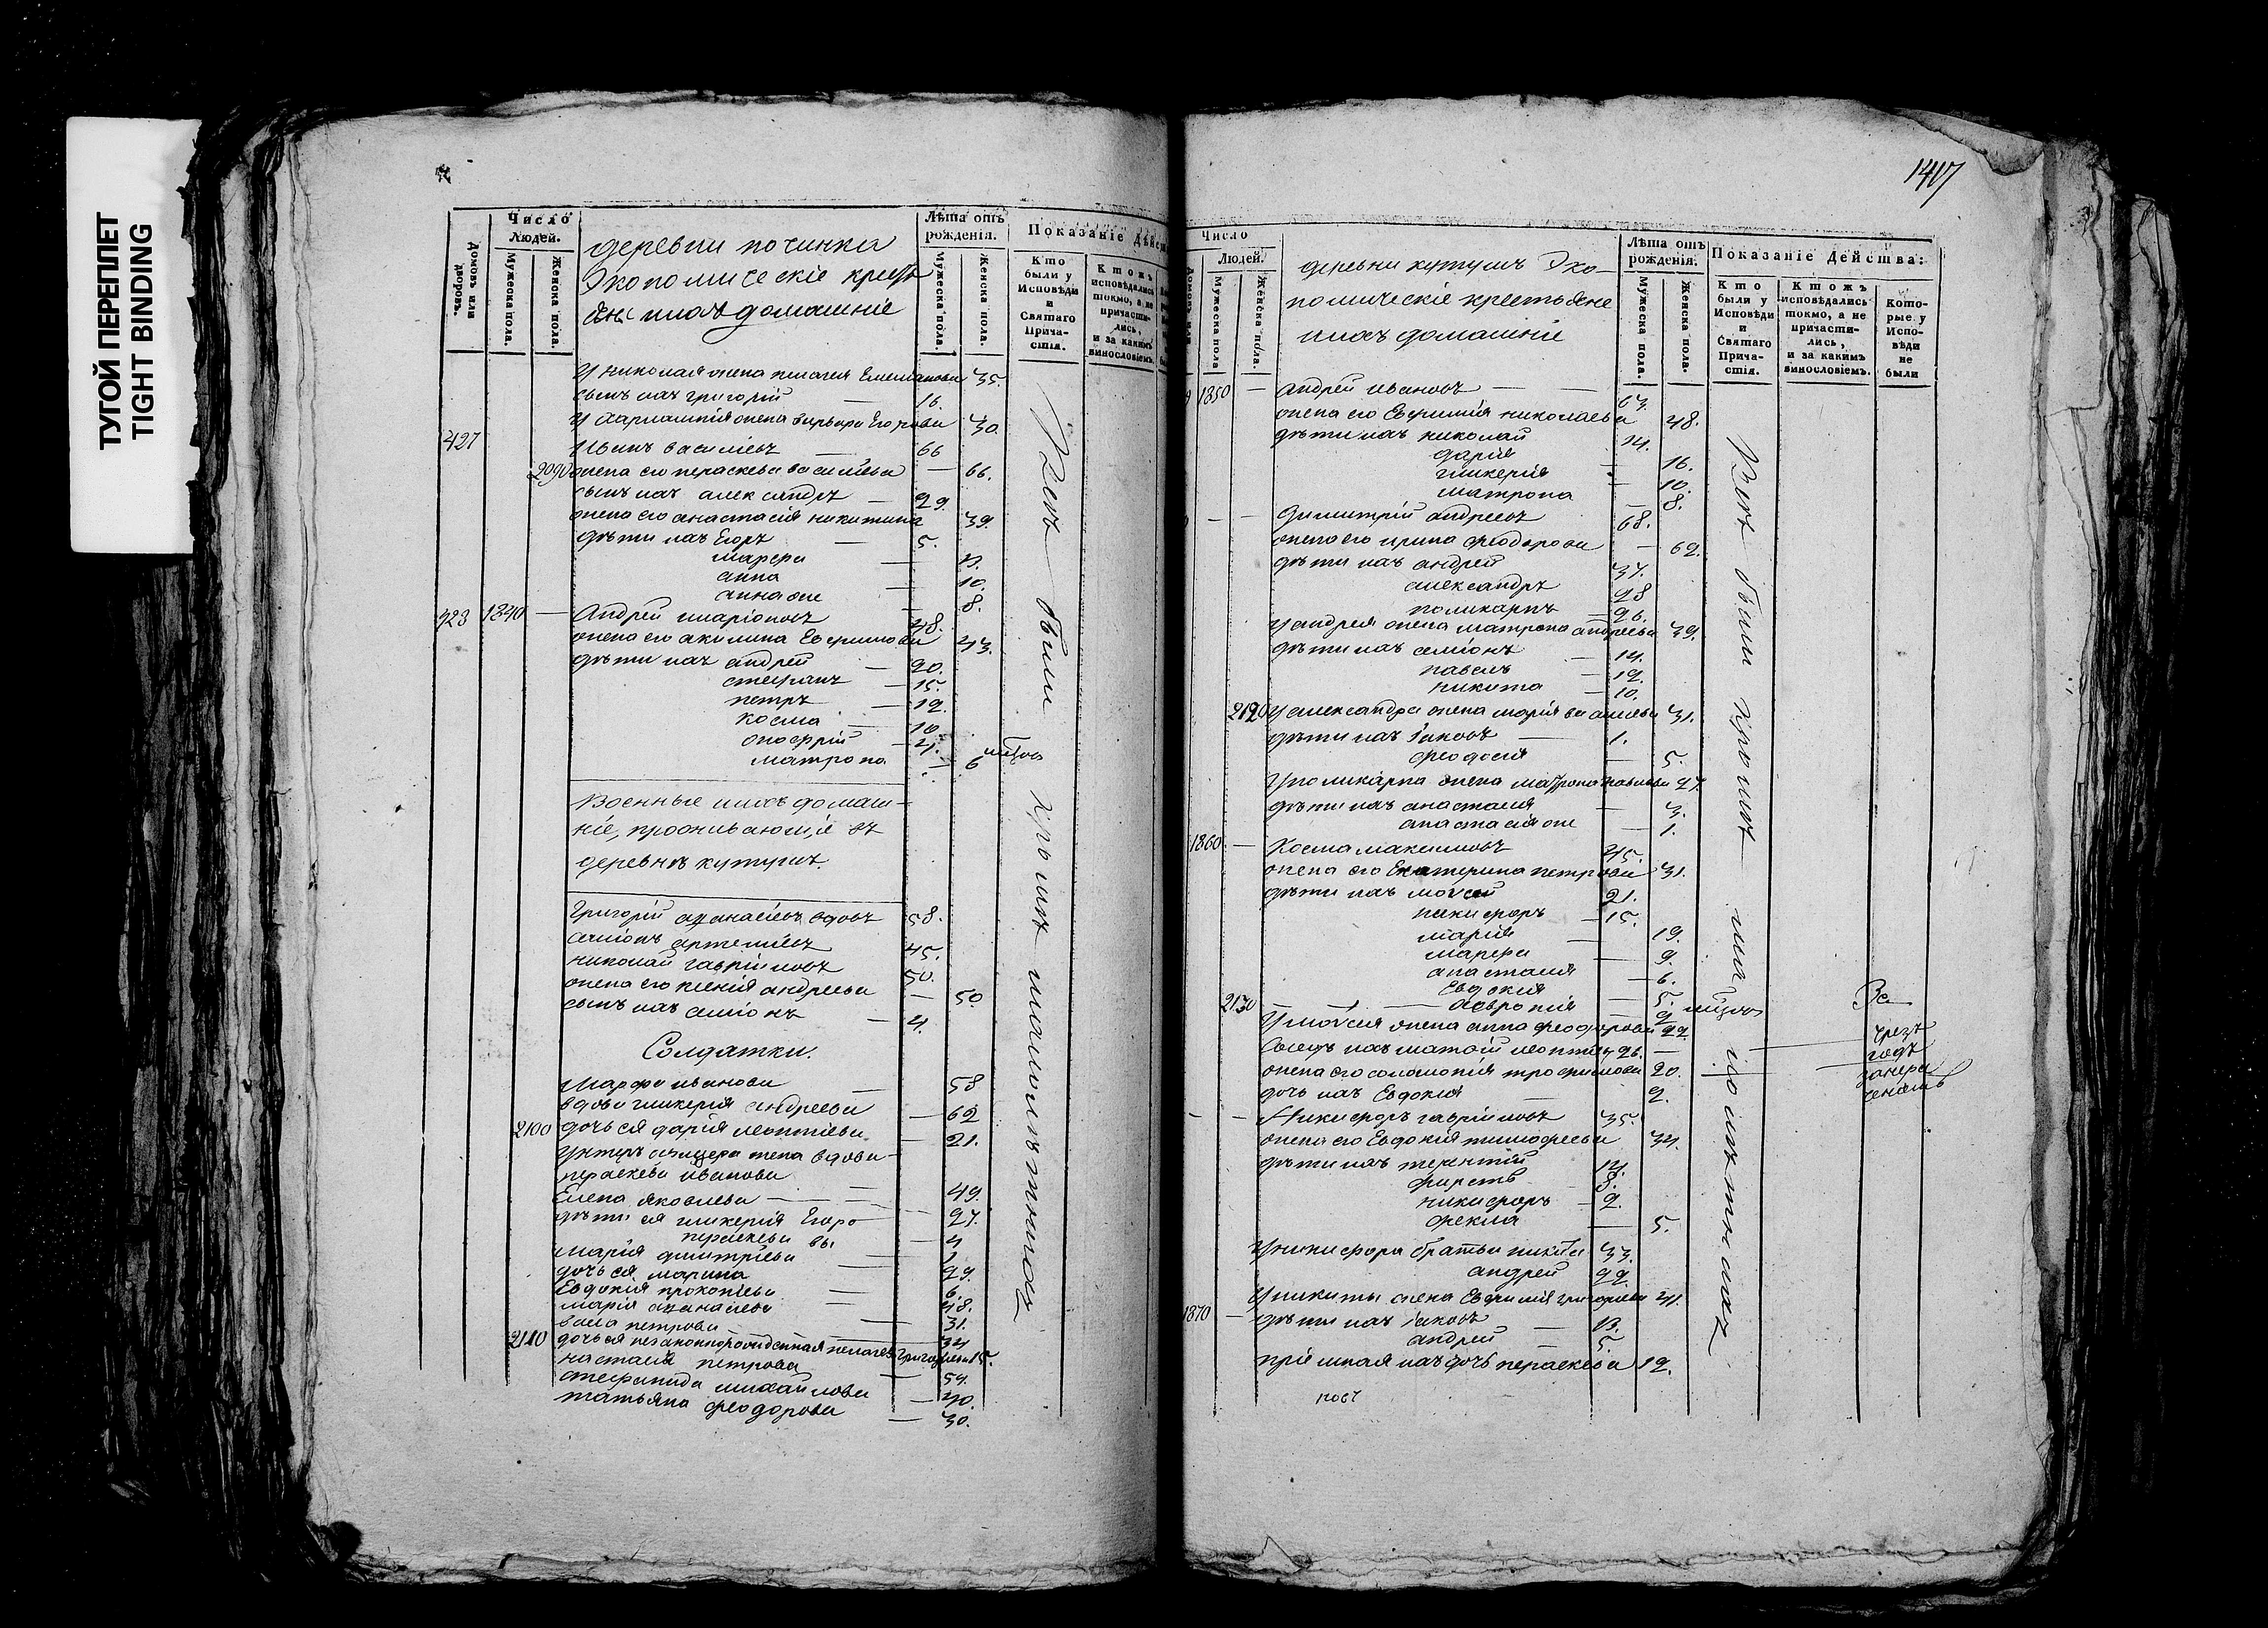 ТУГОЙ ПЕРЕПЛЕТ
TIGHT BINDING
Домовъ или дворовъ.
Число Людей.
Мужеска пола.
Женска пола.
деревни починка
Экономическіе кресть
яне и ихъ домашніе
Лѣта отъ рожденія.
Мужеска пола.
Женска пола.
Показаніе Дѣйст
Кто были у Исповѣди и Святаго Прича-стія.
Ктожъ исповѣдались токмо, а не причасти-лись, и за какимъ винословіемъ.
У николая жена пелагея Емелианова 35.
сынъ ихъ григорій — 16.
жена варвара Егорова 30.
427 Иванъ василіевъ — 66
2090 жена его параскева василіева — 66.
сынъ ихъ александръ — 29.
жена его анастасія никитина 39.
дѣти ихъ Егоръ — 5.
марѳа —
анна — 10.
анна же — 8.
428 1840 — Андрей иларіоновъ 48.
жена его акилина Евфимова 43.
дѣти ихъ андрей — 20.
стефанъ — 15.
петръ — 12.
косма — 10
онофрій —
матрона — 6
Военные и ихъ домаш-
ніе, проживающіе въ
деревнѣ кутушъ.
Григорій аѳанасіевъ вдовъ 58.
симіонъ артеміевъ 45.
николай гавріиловъ 50.
жена его ксенія андреева — 50
сынъ ихъ симіонъ — 4.
Солдатки.
Марфа иванова — 58
вдова гликерія андреева — 62
2100 дочь ея дарія леонтіева — 21.
ундеръ афицера жена вдова
параскева иванова — 49.
Елена яковлева — 27.
дѣти ея гликерія Егоро
параскева вы — 4
марія димитріева — 1
дочь ея марина 29.
Евдокія прокопіева — 6.
марія аѳанасіева — 48.
васса петрова — 31.
2110 дочь ея незаконнорожденная пелагея григоріева 15.
настасія петрова 34
степанида михайлова — 54.
татьяна феодорова — 40.
— 30.
Всѣ были кромѣ малолѣтныхъ
1417
Число Людей.
Мужеска пола
Женска пола.
деревни кутушъ Эко-
номическіе крестьяне
и ихъ домашніе
Лѣта отъ рожденія.
Мужеска пола.
Женска пола.
Показаніе Дѣйства:
Кто были у Исповѣди и Святаго Прича-стія.
Ктожъ исповѣдались токмо, а не причасти-лись, и за какимъ винословіемъ.
Кото-рые у Испо-вѣди не были
1850 — Андрей ивановъ — 63.
жена его Евфимія николаева 48.
дѣти ихъ николай 14.
дарія — 16.
гликерія — 10.
матрона — 8.
— — Димитрій андреевъ 68.
жена его ирина феодорова — 62.
дѣти ихъ андрей 37.
александръ 28
поликарпъ — 26.
У андрея жена матрона андреева 39.
дѣти ихъ симіонъ — 14.
павелъ — 12.
никита — 10.
2120 У александра жена марія василіева 31.
дѣти ихъ іаковъ — 1.
феодосія — 5.
У поликарпа жена матрона 27.
дѣти ихъ анастасія — 3.
анастасія же — 1.
1860 — Косма максимовъ 45.
жена его Екатерина петрова 31.
дѣти ихъ моисей 21.
никифоръ — 15.
марія — 19.
марѳа — 9.
анастасія — 6.
Евдокія — 5.
2130 — — февронія — 2
У моисея жена анна феодорова 22.
26. —
жена его соломонія трофимова 20.
дочь ихъ Евдокія — 2.
— — Никифоръ гавріиловъ 35.
жена его Евдокія тимофеева 34.
дѣти ихъ терентій
фирсъ — 8.
никифоръ — 2.
фекла — 5.
У никифора братья никита 33.
андрей 22.
У никиты жена Евфимія григорьева 41.
1870 — дѣти ихъ іаковъ
андрей — 5.
пріимная ихъ дочь параскева 12.
Всѣ были кромѣ малолѣтныхъ
чрезъ
годъ